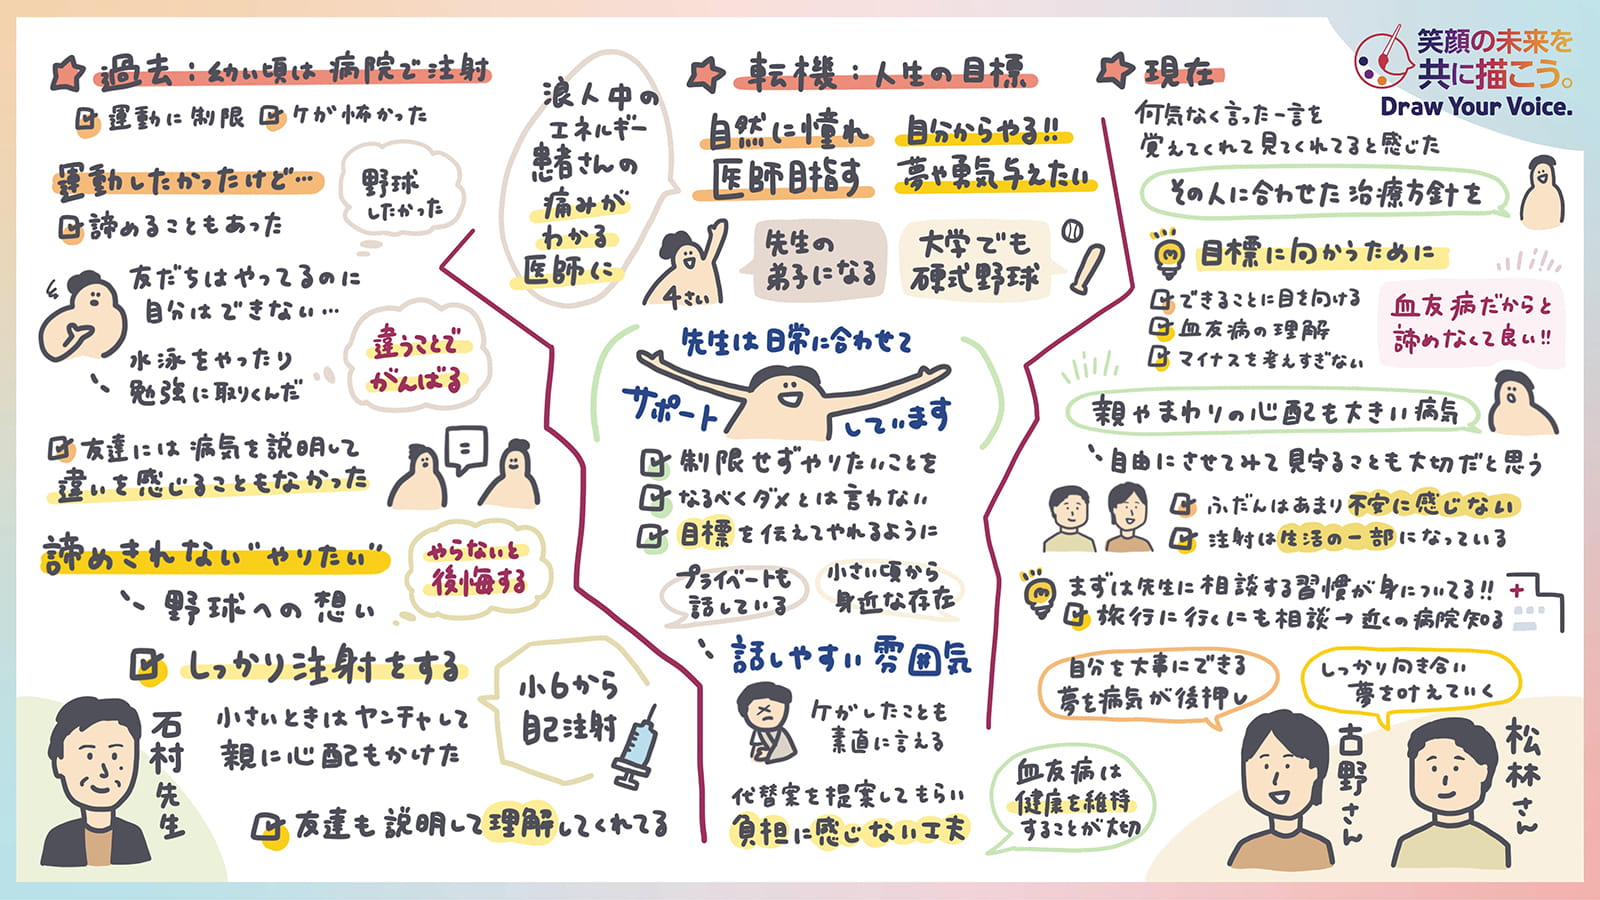 過去：幼い頃は病院で注射
運動に制限 ケガが怖かった
運動したかったけど…
野球
したかった
諦めることもあった
友だちはやってるのに
自分はできない…
水泳をやったり
勉強に取りくんだ
違うことで
がんばる
友達には病気を説明して
違いを感じることもなかった
=
諦めきれない"やりたい"
野球への想い
やらないと
後悔する
しっかり注射をする
小6から
自己注射
小さいときはヤンチャして
親に心配もかけた
友達も説明して理解してくれてる
石村先生
浪人中の
エネルギー
患者さんの
痛みが
わかる
医師に
転機：人生の目標
自然に憧れ
医師目指す
自分からやる!!
夢や勇気与えたい
4さい
先生の
弟子になる
大学でも
硬式野球
先生は日常に合わせて
サポート
しています
制限せずやりたいことを
なるべくダメとは言わない
目標を伝えてやれるように
プライベートも
話している
小さい頃から
身近な存在
話しやすい雰囲気
ケガしたことも
素直に言える
代替案を提案してもらい
負担に感じない工夫
血友病は
健康を維持
することが大切
現在
笑顔の未来を
共に描こう。
Draw Your Voice.
何気なく言った一言を
覚えてくれて見てくれてると感じた
その人に合わせた治療方針を
目標に向かうために
できることに目を向ける
血友病の理解
マイナスを考えすぎない
血友病だからと
諦めなくて良い!!
親やまわりの心配も大きい病気
自由にさせてみて見守ることも大切だと思う
ふだんはあまり不安に感じない
注射は生活の一部になっている
まずは先生に相談する習慣が身についてる!!
旅行に行くにも相談→近くの病院知る
自分を大事にできる
夢を病気が後押し
しっかり向き合い
夢を叶えていく
古野さん
松林さん